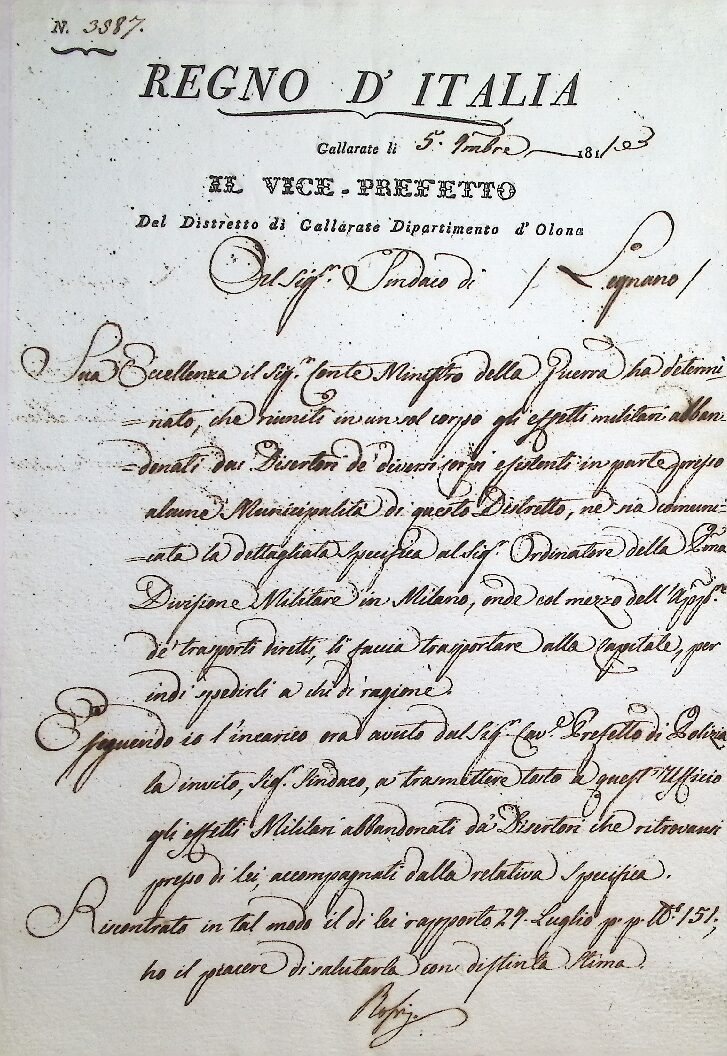 N. 3887.
REGNO D' ITALIA
Gallarate li 5. 9mbre 1813
IL VICE-PREFETTO
Del Distretto di Gallarate Dipartimento d' Olona
Al Sig.r Sindaco di / Legnano /
Sua Eccellenza il Sig.r Conte Ministro della Guerra ha determi=
=nato, che riuniti in un sol corpo gli effetti militari abban=
=donati dai Disertori de' diversi corpi esistenti in parte presso
alcune Municipalità di questo Distretto, ne sia comuni=
=cata la dettagliata specifica al Sig.r Ordinatore della P.ma
Divisione Militare in Milano, onde col mezzo dell'
de' trasporti diretti, li faccia trasportare alla Capitale, per
indi spedirli a chi di ragione.
Eseguendo io l'incarico ora avuto dal Sig.r Cav.e Prefetto di Polizia
la invito, Sig.r Sindaco, a trasmettere tosto a quest'Ufficio
gli effetti Militari abbandonati da' Disertori che ritrovansi
presso di lei, accompagnati dalla relativa Specifica.
Riscontrato in tal modo il di lei rapporto 29. Luglio p. p. N.o 151,
ho il piacere di salutarla con distinta stima.